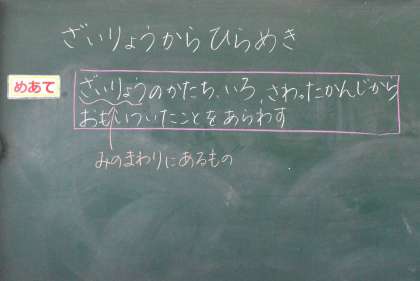 ざいりょうからひらめき
めあて
ざいりょうのかたち、いろ、さわったかんじから
おもいついたことをあらわす
みのまわりにあるもの